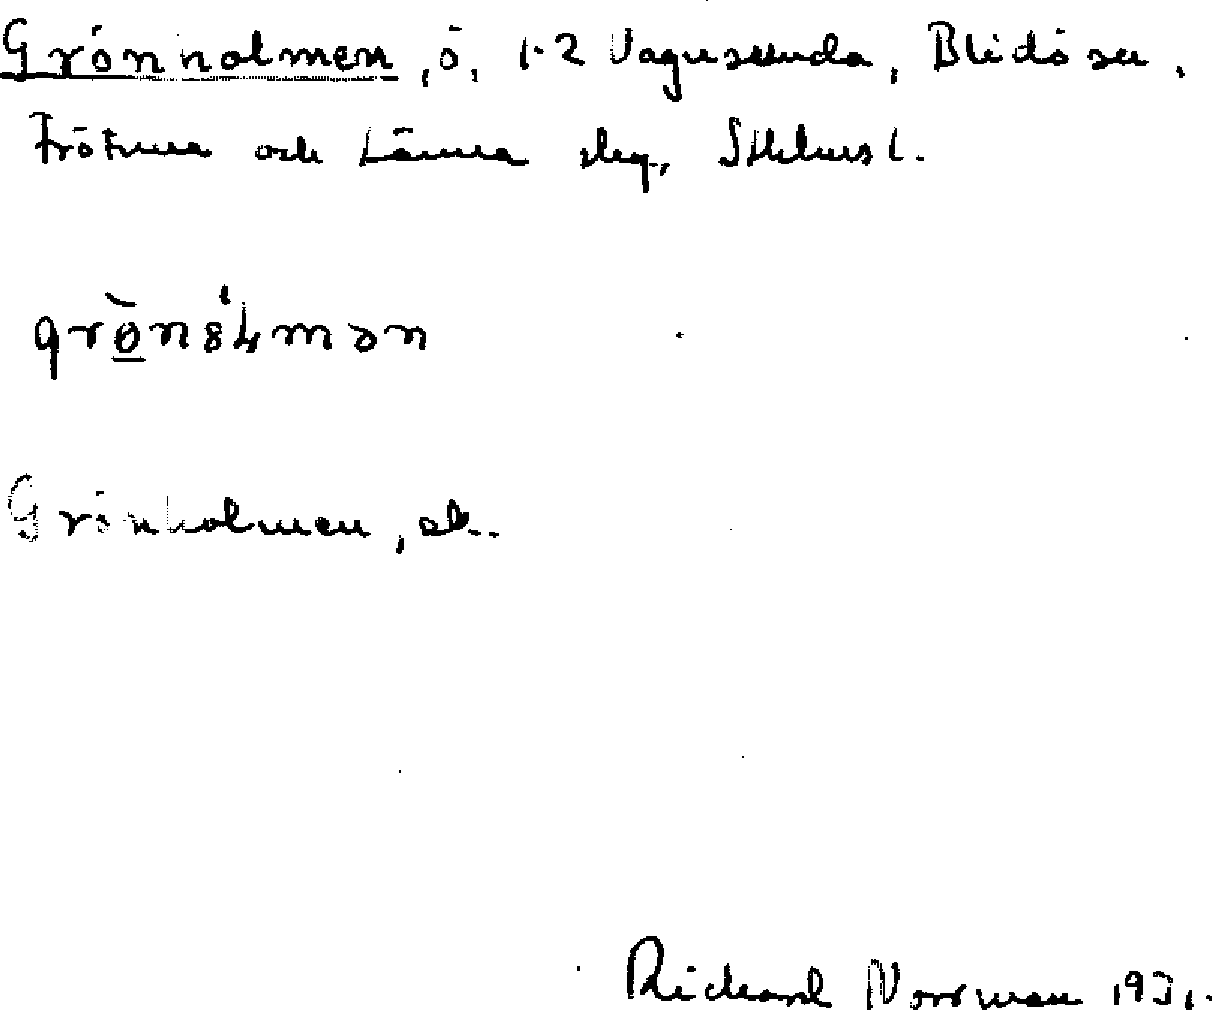 Grönholmen, ö, 1-2 Vagnsunda, Blidö sn,
Frötuna och Länna skg, Sthlms l.
grö̀nòlmən
Grönholmen, ek.
Richard Norrman 1931.